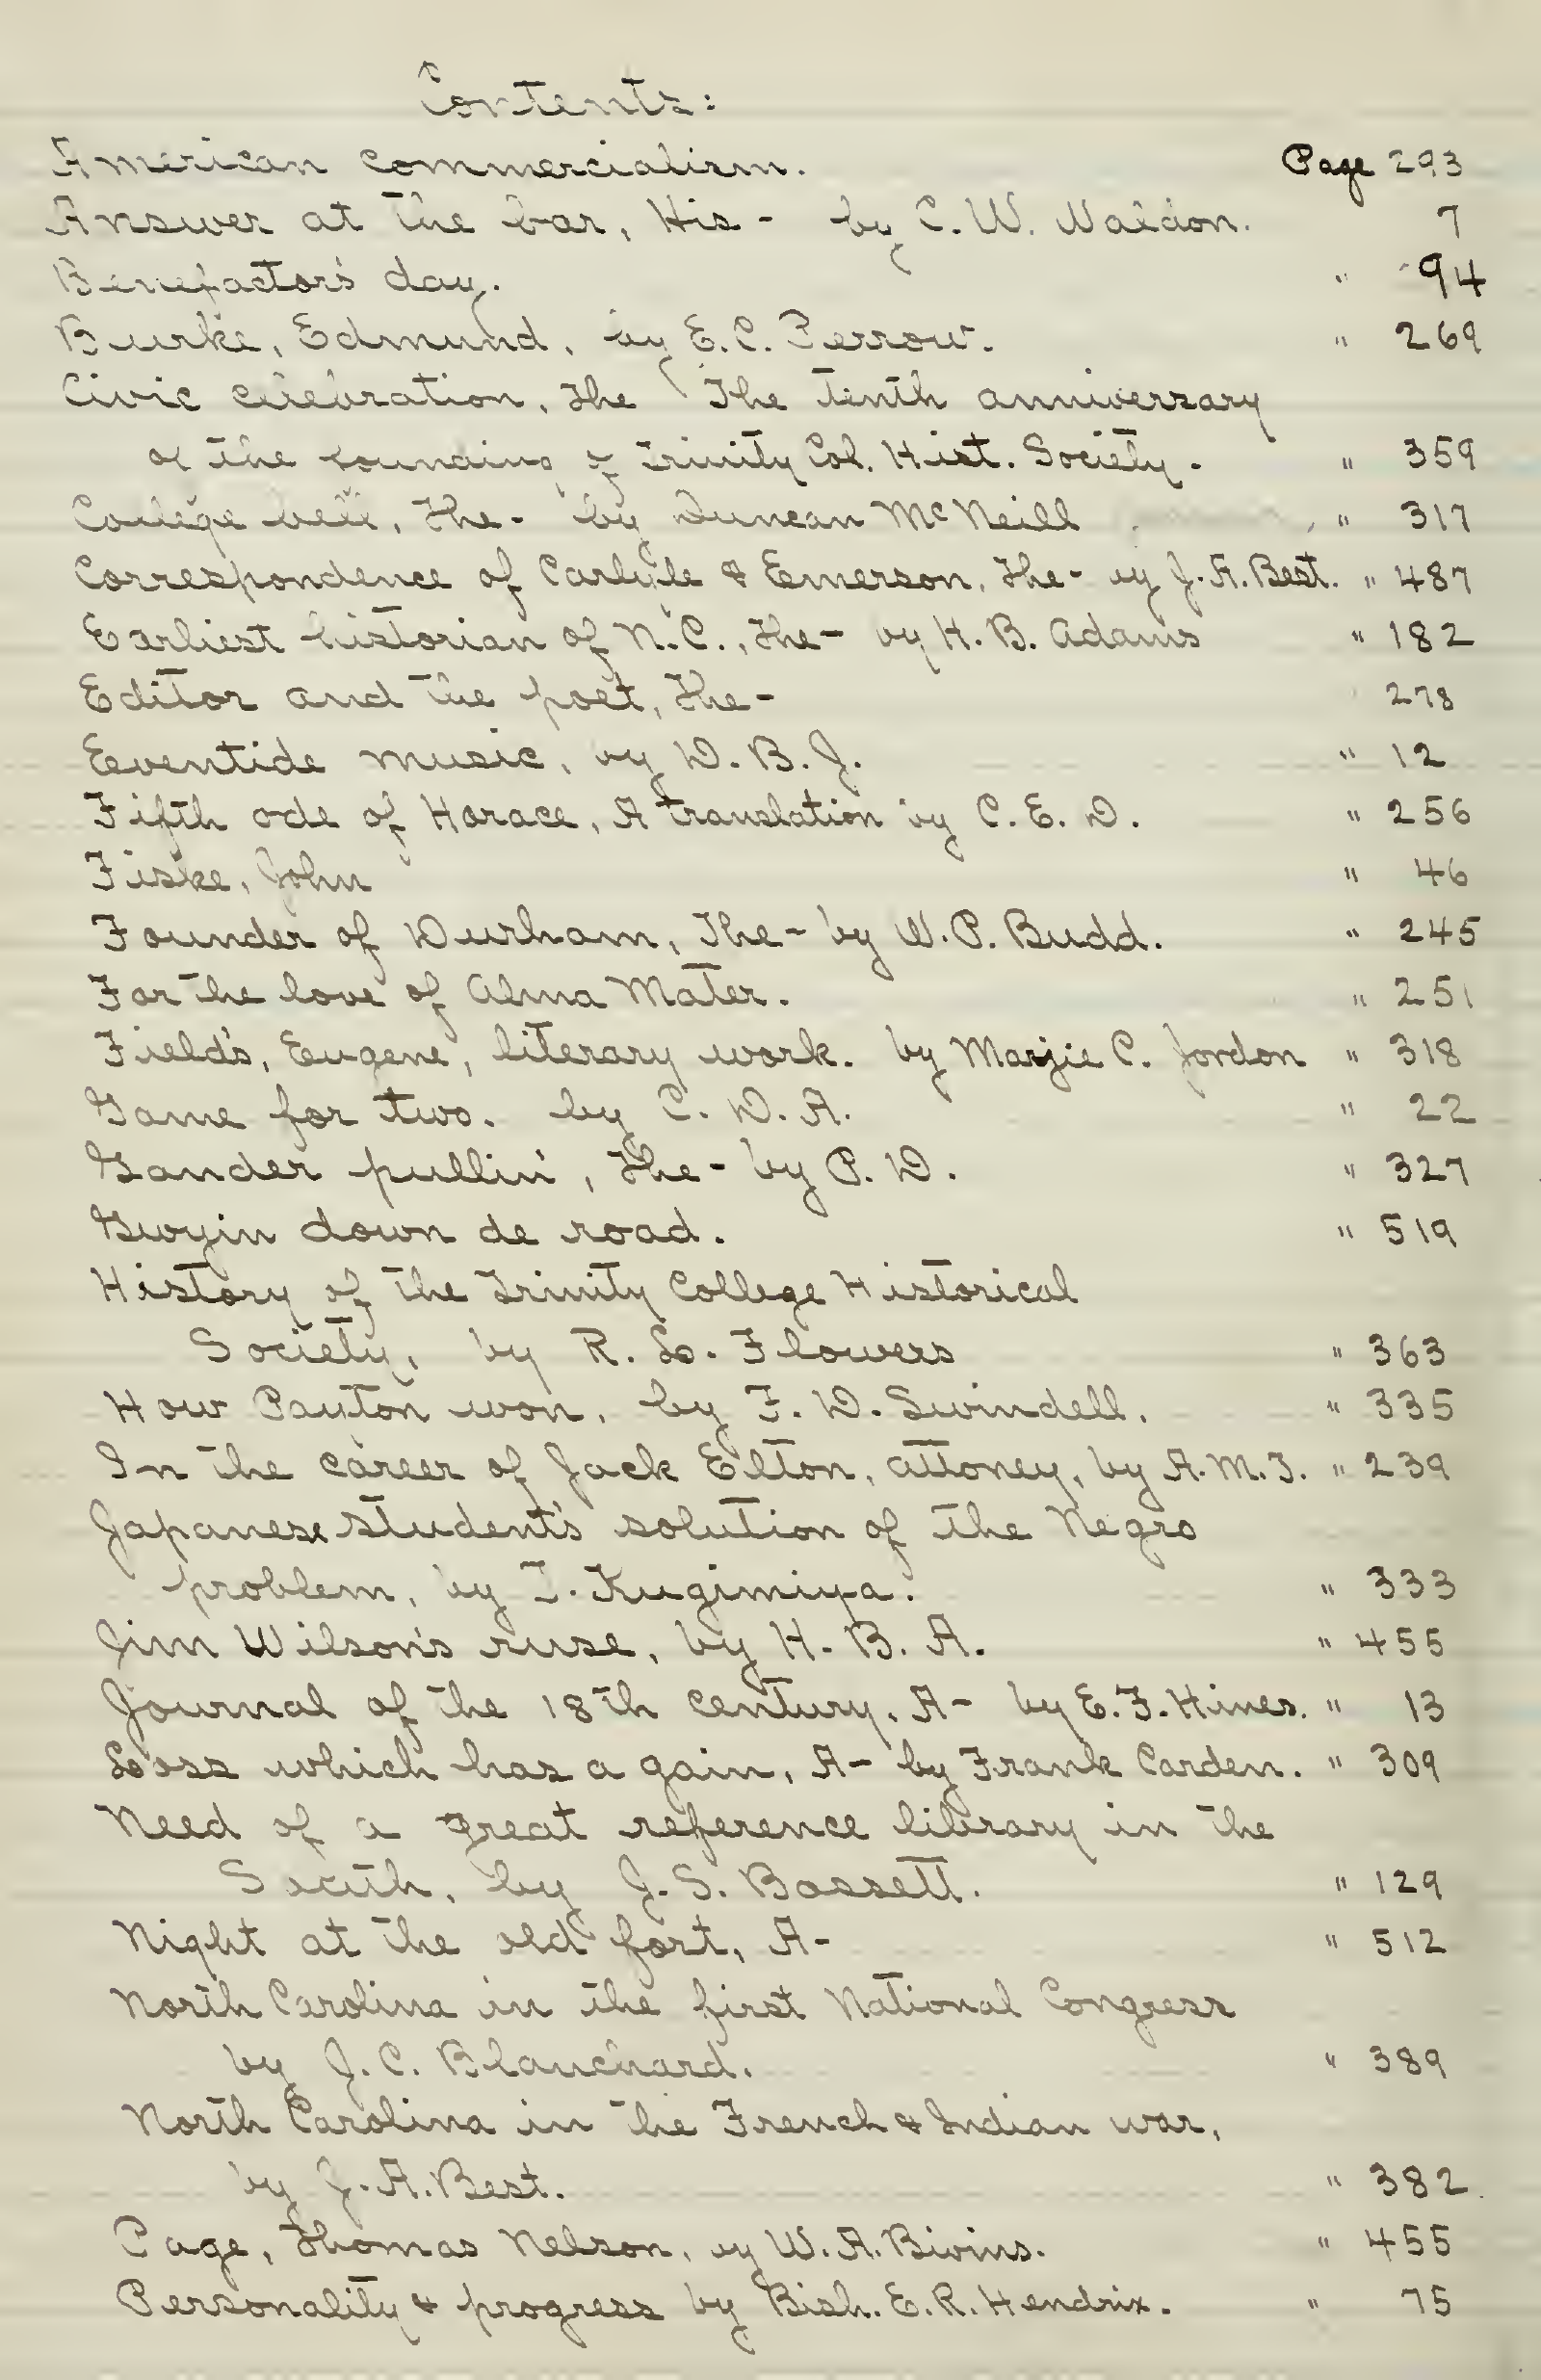 Contents:
American commercialism. Page 293
Answer at the bar, His - by C. W. Waldon. 7
Benefactor's day. " 94
Burke, Edmund, by E. C. Perrow. " 269
Civic celebration, The The tenth anniversary
of the founding of Trinity Col. Hist. Society. " 359
College bell, The - by Duncan McNeill " 317
Correspondence of Carlyle & Emerson, The - by J. A. Best. " 487
Earliest historian of N.C., The - by H. B. Adams " 182
Editor and the poet, The - 278
Eventide music, by W. B. J. " 12
Fifth ode of Horace, A translation by C. E. W. " 256
Fiske, John " 46
Founder of Durham, The - by W. P. Budd. " 245
For the love of Alma Mater. " 251
Field's, Eugene, literary work. by Marjie C. Jordon " 318
Game for two. by C. W. A. " 22
Gander pullin', The - by P. W. " 327
Gwyin down de road. " 519
History of the Trinity College Historical
Society, by R. L. Flowers " 363
How Payton won, by F. D. Swindell. " 335
In the career of Jack Elton, attoney, by A. M. T. " 239
Japanese student's solution of the Negro
problem, by T. Kugimiya. " 333
Jim Wilson's ruse, by H. B. A. " 455
Journal of the 18th century, A - by E. F. Hines. " 13
Loss which has a gain, A - by Frank Carden. " 309
Need of a great reference library in the
South, by J. S. Bassett. " 129
Night at the old fort, A - " 512
North Carolina in the first National Congress
by J. C. Blanchard. " 389
North Carolina in the French & Indian war,
by J. A. Best. " 382
Page, Thomas Nelson, by W. A. Bivins. " 455
Personality & progress by Bish. E. R. Hendrix. " 75